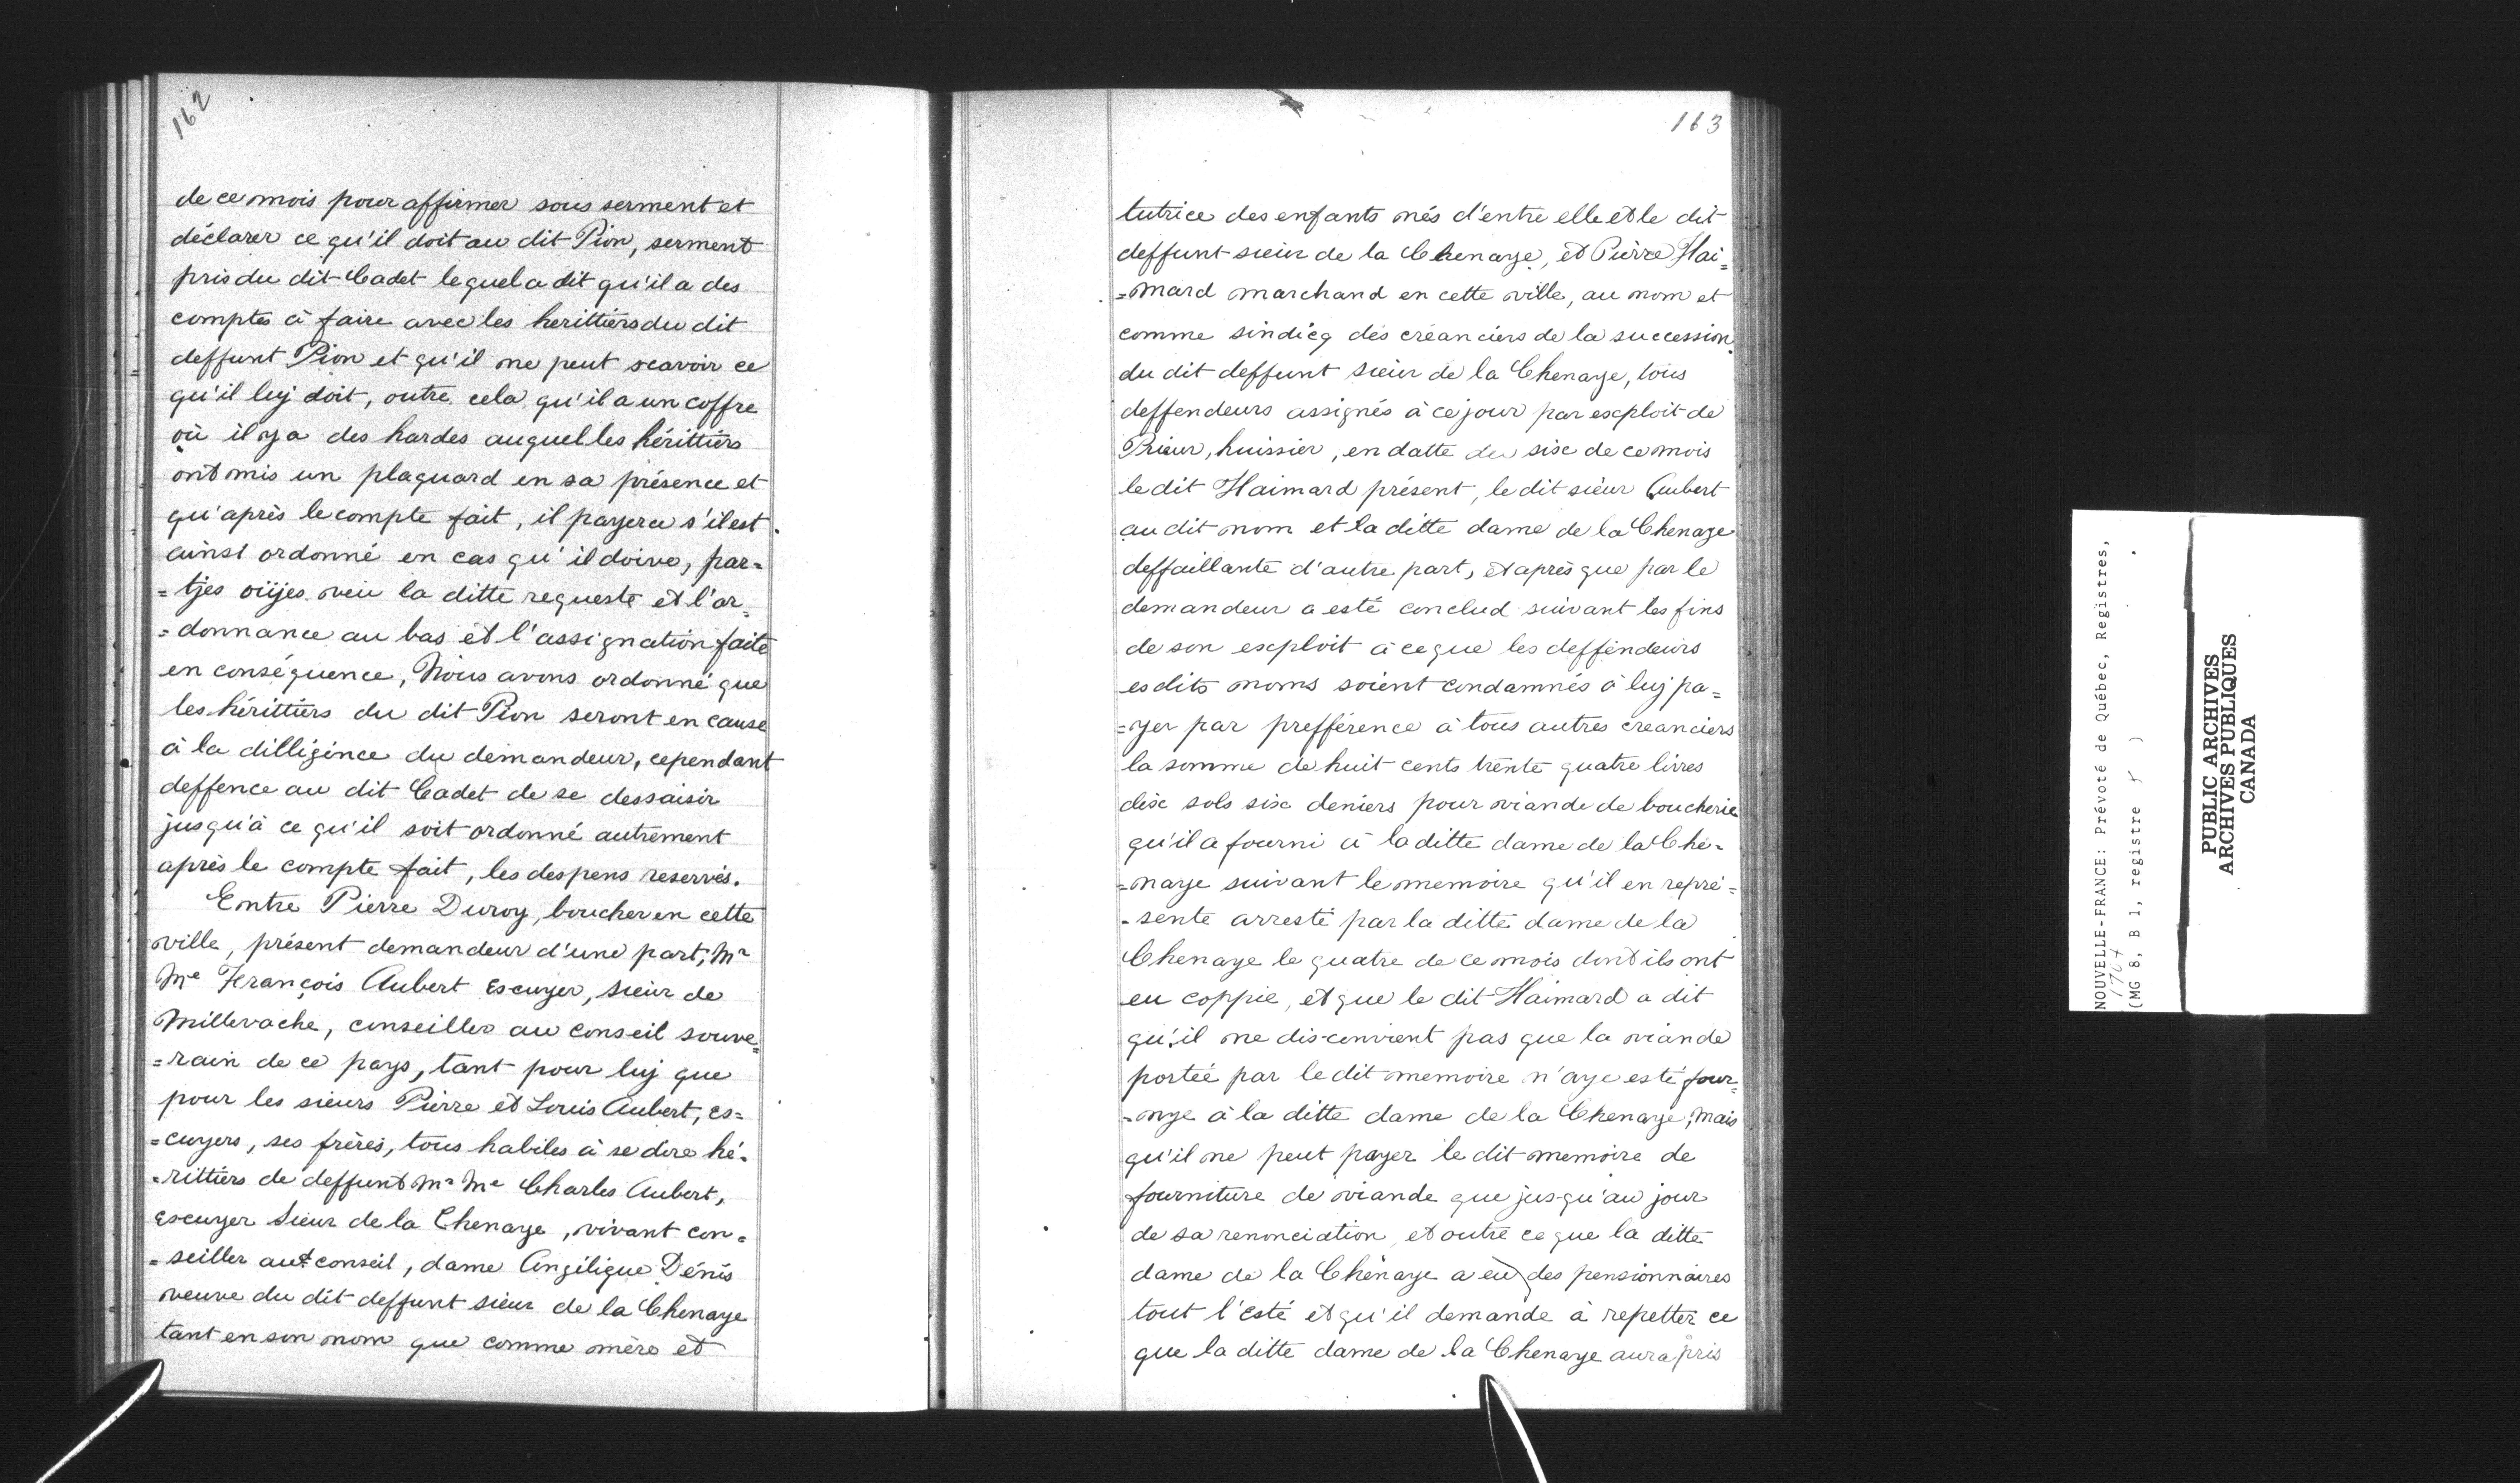 162
de ce mois pour affirmer sous serment et
déclarer ce qu'il doit au dit Pion, serment
pris du dit Cadet lequel a dit qu'il a des
comptes à faire avec les herittiers du dit
deffunt Pion et qu'il ne peut scavoir ce
qu'il luy doit, outre cela qu'il a un coffre
où il y a des hardes auquel les hérittiers
ont mis un plaquard en sa présence et
qu'après le compte fait, il payera s'il est
ainsi ordonné en cas qu'il doive, par=
=tjes oüjes veu la ditte requeste et l'or=
=donnance au bas et l'assignation faite
en conséquence, Nous avons ordonné que
les hérittiers du dit Pion seront en cause
à la dilligence du demandeur, cependant
deffence au dit Cadet de se dessaisir
jusqu'à ce qu'il soit ordonné autrement
après le compte fait, les despens reservés.
Entre Pierre Duroy, boucher en cette
ville, présent demandeur d'une part, Mr
Me François Aubert Escuyer, sieur de
Millevache, conseiller au conseil souve=
=rain de ce pays, tant pour luy que
pour les sieurs Pierre et Louis Aubert, es=
=cuyers, ses frères, tous habiles à se dire hé=
=rittiers de deffunt Mr Me Charles Aubert,
Escuyer Sieur de la Chenaye, vivant con=
=seiller audt conseil, dame Angélique Dénis
veuve du dit deffunt sieur de la Chenaye
tant en son nom que comme mère et
163
tutrice des enfants nés d'entre elle et le dit
deffunt sieur de la Chenaye, et Pierre Hai=
=mard marchand en cette ville, au nom et
comme sindicq des créanciers de la succession
du dit deffunt sieur de la Chenaye, tous
deffendeurs assignés à ce jour par exploit de
Prieur, huissier, en datte du six de ce mois
le dit Haimard présent, le dit sieur Aubert
au dit nom et la ditte dame de la Chenaye
deffaillante d'autre part, et après que par le
demandeur a esté conclud suivant les fins
de son exploit à ce que les deffendeurs
esdits noms soient condamnés à luy pa=
=yer par prefférence à tous autres creanciers
la somme de huit cents trente quatre livres
dix sols six deniers pour viande de boucherie
qu'il a fourni à la ditte dame de la Che=
=naye suivant le memoire qu'il en repré=
=sente arresté par la ditte dame de la
Chenaye le quatre de ce mois dont ils ont
eu coppie, et que le dit Haimard a dit
qu'il ne disconvient pas que la viande
portée par le dit memoire n'aye esté four=
=nye à la ditte dame de la Chenaye, mais
qu'il ne peut payer le dit memoire de
fourniture de viande que jusqu'au jour
de sa renonciation, et outre ce que la ditte
dame de la Chenaye a eu des pensionnaires
tout l'esté et qu'il demande à repetter ce
que la ditte dame de la Chenaye aura pris
NOUVELLE-FRANCE: Prévoté de Québec, Registres,
1707
(MG 8, B 1, registre )
PUBLIC ARCHIVES
ARCHIVES PUBLIQUES
CANADA